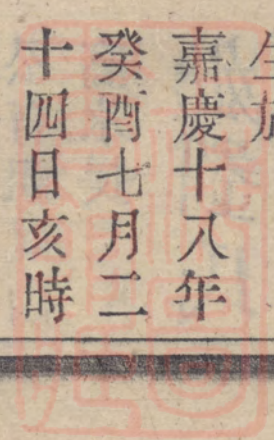 生於
嘉慶十八年
癸酉七月二
十四日亥時